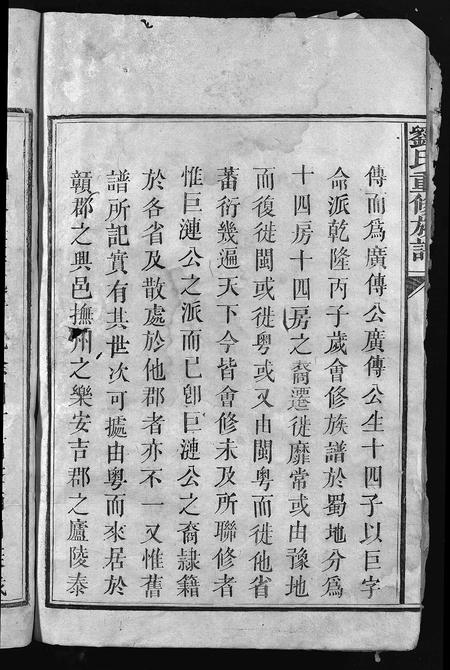 劉氏重修族譜
傳而為廣傳公廣傳公生十四子以巨字
命派乾隆丙子歲會修族譜於蜀地分為
十四房十四房之裔遷徙靡常或由豫地
而復徙閩或徙粵或又由閩粵而徙他省
蕃衍幾遍天下今皆會修未及所聯修者
惟巨漣公之派而已卽巨漣公之裔隷籍
於各省及散處於他郡者亦不一又惟舊
譜所記實有其世次可據由粵而來居於
贛郡之興邑撫州之樂安吉郡之廬陵泰